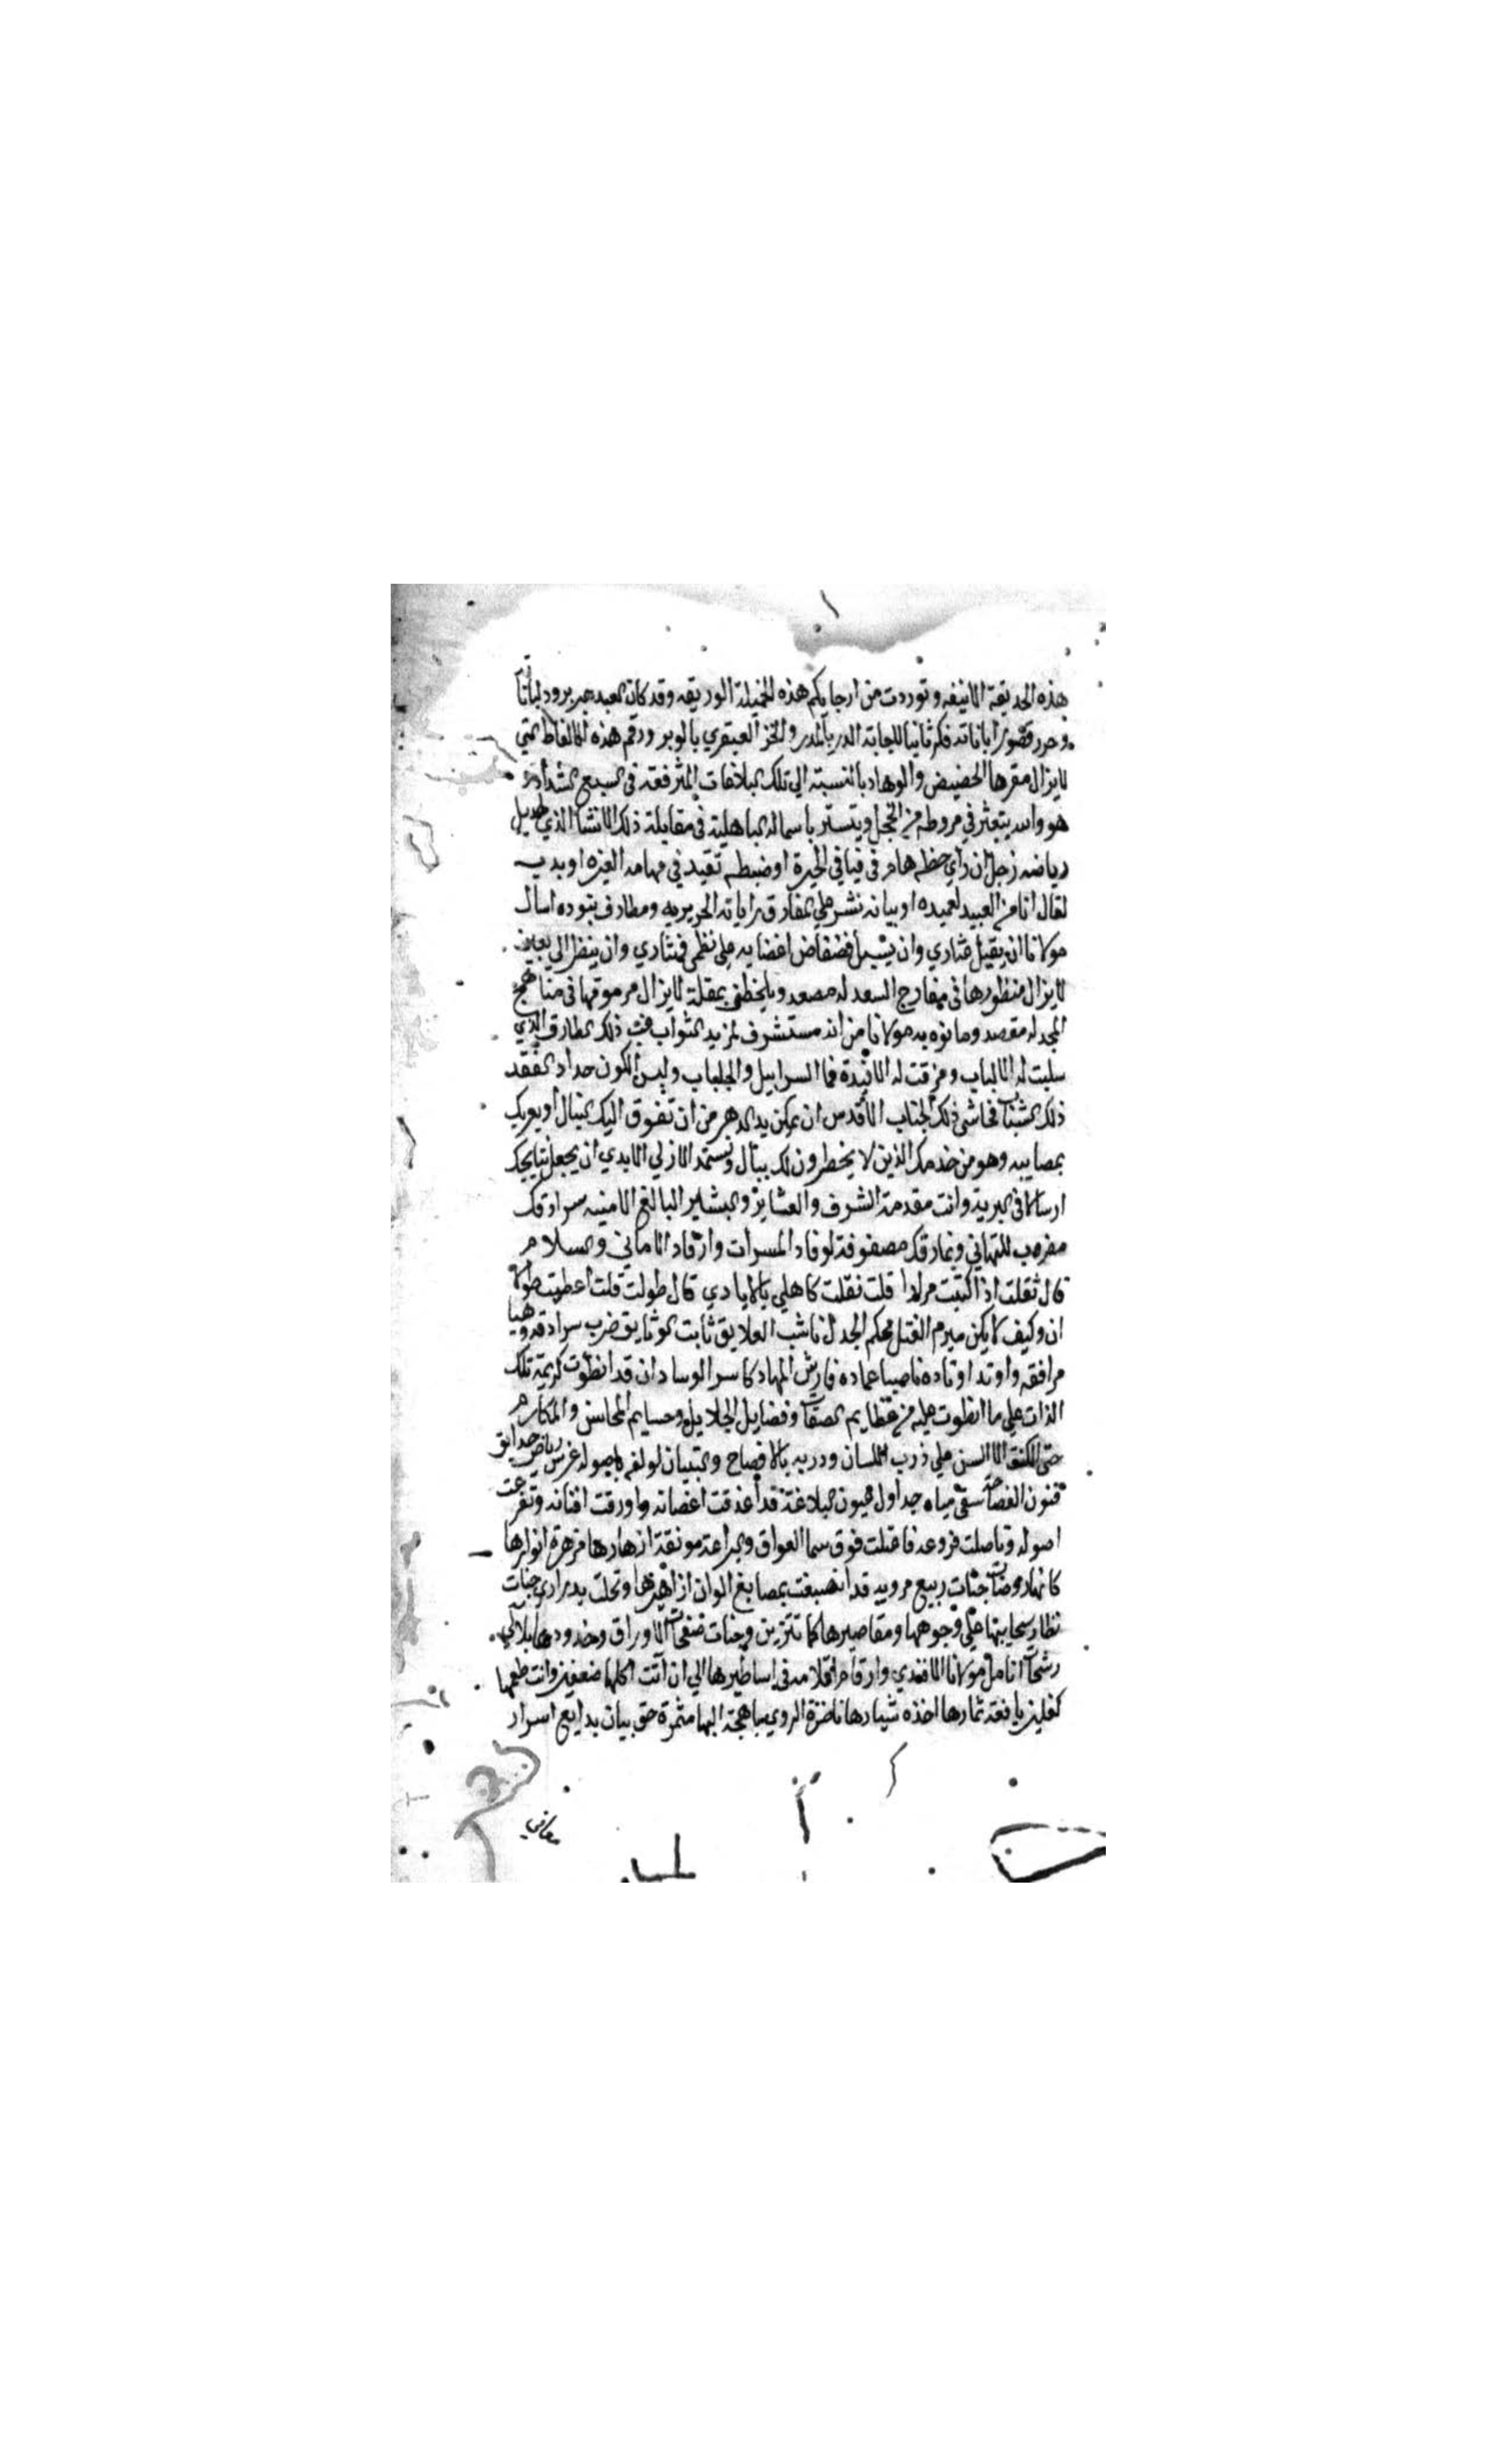 هذه الحديقة الانيقه وتوردت من ارجايكم هذه الخميلة الوريقه وقد كان العبد حبر برود لباناتا
وحرر قصور اباناته فكر ثانيا الدر بالمدر والخز العبقري بالوبر ورقم هذه الالفاظ التي
لايزال مقرها الحضيض والوهاد بالنسبة الي تلك البلاغات المترفعة في السبع الشداد
هو والله يتعثر في مروطه من الخجل ويتستر باسماله الباهلية في مقابلة ذلك الانشا الذي
رياضه زجل ان راي حظه هام في فيافي الحيرة او ضبطه تقيد في مهامه العيزه او يديه
لقال انا من العبيد لعميده او بيانه نشر علي المفارق راياته الحريريه ومطارف بنوده اسال
مولانا ان يقيل عثاري وان يسبل فضفاض اغضايه علي نظمي ونثاري وان ينظر الي بعين
لايزال منظورها في معارج السعد له مصعد ويلحظني بمقلة لايزال مرموقها في مناهج
المجد له مقصد وما نوه به مولانا من انه مستشرف لمزيد الثواب في ذلك الطارق الذي
سلبت له الالباب ومزقت له الافيدة فما السرابيل والجلباب ولبس الكون حداد الفقد
ذلك الشباب فحاشي ذلك الجناب الاقدس ان يمكن يد الدهر من ان تفوق اليك النبال او يعريك
بمصايبه وهو من خدمك الذين لا يخطرون لك ببال ونستمد الازلي الابدي ان يجعل نتايجك
ارسالا في البرية وانت مقدمة الشرف والعشاير والبشاير البالغ الامنيه سرادقك
مضروب للتهاني ونمارقك مصفوفة لوفاد المسرات وارفاد الاماني والسلام
قال ثقلت اذ اتيت مرارا قلت ثقلت كاهلي بالايادي قال طولت قلت اعطيت طولا
ان وكيف لا يكن مبرم الفتل محكم الجدل ناشب العلايق ثابت الوثايق ضرب سرادقه
مرافقه واوتد اوتاده ناصبا عماده فارش المهاد كاسر الوساد ان قد انطوت كريمة تلك
الذات علي ما انطوت عليه من عظايم الصفات وفضايل الجلايل وحسايم المحاسن والمكارم
حتي الكنة الالسن علي ذرب اللسان ودربه بالافصاح والتبيان غرس رياض حدايق
فنون الفصاحة سقي مياه جداول عيون البلاغة قد اغدقت اغصانه واورقت افنانه وتفرعت
اصوله وتاصلت فروعه فاعتلت فوق سما العواق والبراعة مونقة ازهارها مزهرة انوارها
كانها روضات جنات ربيع مرويه قد انصبغت بمصابغ الوان ازاهرها وتحلت بدراري
سحايبها علي وجوهها ومقاصيرها كما تتزين وجنات صفحات الاوراق وخدودها بلالي
رشحات انامل مولانا الافندي وارقام اقلامه في اساطيرها الي ان آتت اكلها ضعفين وانت طعمها
كفلين يافعة ثمارها اخذه شيارها ناضرة الروي باهجة البها مثمرة حق بيان بدايع اسرار
معاني